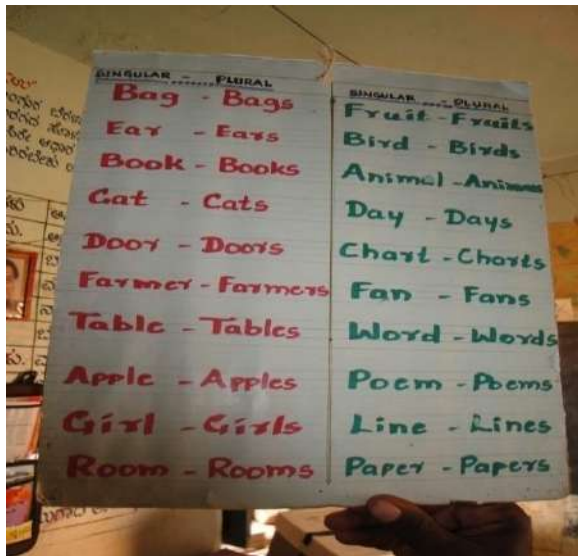 SINGULAR - PLURAL
Bag - Bags
Ear - Ears
Book - Books
Cat - Cats
Door - Doors
Farmer - Farmers
Table - Tables
Apple - Apples
Girl - Girls
Room - Rooms
SINGULAR - PLURAL
Fruit - Fruits
Bird - Birds
Animal - Animals
Day - Days
Chart - Charts
Fan - Fans
Word - Words
Poem - Poems
Line - Lines
Paper - Papers